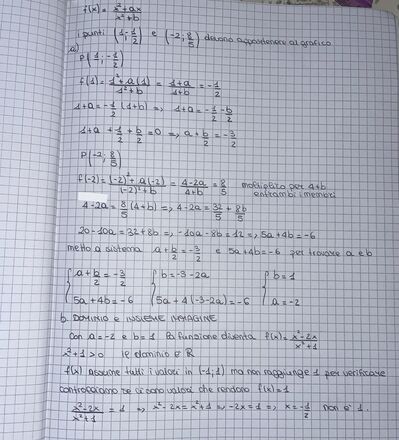 f(x) = x²+ax / x²+b
i punti (1; -1/2) e (-2; 8/5) devono appartenere al grafico
a)
P(1; -1/2)
f(1) = 1²+a(1) / 1²+b = 1+a / 1+b = -1/2
1+a = -1/2 (1+b) => 1+a = -1/2 - b/2
1+a + 1/2 + b/2 = 0 => a + b/2 = -3/2
P(-2; 8/5)
f(-2) = (-2)²+a(-2) / (-2)²+b = 4-2a / 4+b = 8/5 moltiplico per 4+b entrambi i membri
4-2a = 8/5 (4+b) => 4-2a = 32/5 + 8b/5
20-10a = 32+8b => -10a-8b = 12 => 5a+4b = -6
metto a sistema a + b/2 = -3/2 e 5a+4b = -6 per trovare a e b
{ a + b/2 = -3/2 { b = -3-2a { b = 1
5a+4b = -6 5a+4(-3-2a) = -6 a = -2
b. DOMINIO e INSIEME IMMAGINE
Con a = -2 e b = 1 la funzione diventa f(x) = x²-2x / x²+1
x²+1 > 0 le dominio è R
f(x) assume tutti i valori in (-1; 1) ma non raggiunge 1 per verificare
controlliamo se ci sono valori che rendono f(x) = 1
x²-2x / x²+1 = 1 => x²-2x = x²+1 => -2x = 1 => x = -1/2 non è 1.